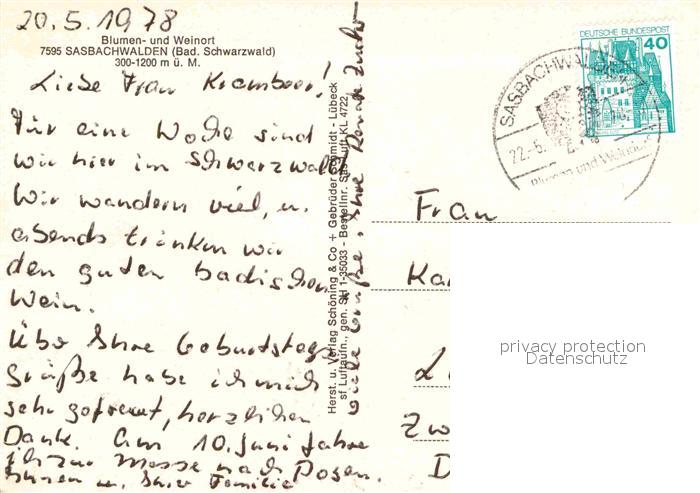 20.5.1978
Blumen- und Weinort
7595 SASBACHWALDEN (Bad. Schwarzwald)
300-1200 m ü. M.
Liebe Frau
Für eine Woche sind
wir hier im Schwarzwald
Wir wandern viel, u.
abends trinken wir
den guten badischen
Wein.
Über Ihre Geburtstags
grüße habe ich mich
sehr gefreut, herzlichen
Dank. Am 10. Juni fahre
ich zur Messe nach Posen.
Ihnen u. Ihrer Familie
viele Grüße, Ihre Renate
Herst. u. Verlag Schöning & Co + Gebrüder Schmidt - Lübeck
sf Luftaufn., gen. SH 1-35033 - Bestellnr. Sas Luft KL 4722
DEUTSCHE BUNDESPOST
40
SASBACHWALDEN
22.-5.
Blumen und Weinort
Frau
Ka
L
Zw
D
privacy protection
Datenschutz